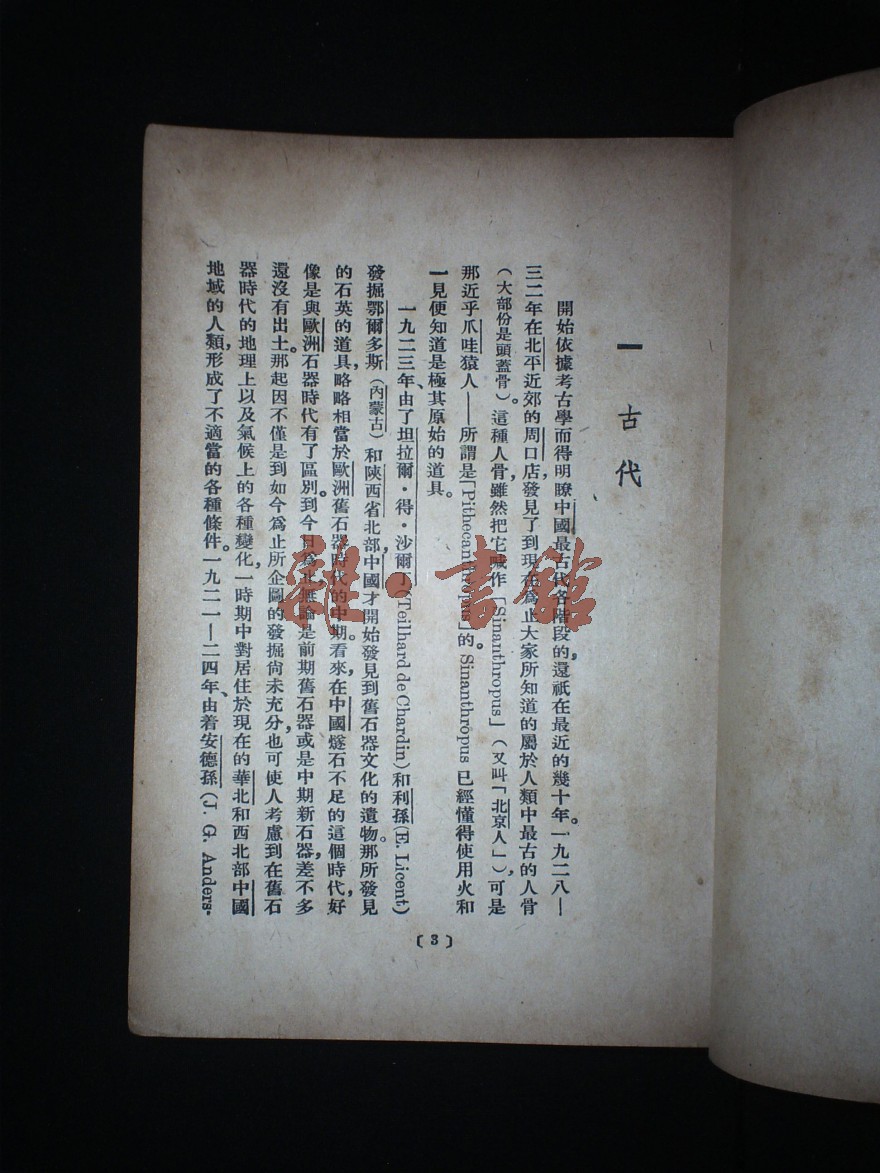 一 古代
開始依據考古學而得明瞭中國最古代各階段的，還祇在最近的幾十年。一九二八—
三二年在北平近郊的周口店，發見了到現在爲止大家所知道的屬於人類中最古的人骨
（大部份是頭蓋骨）。這種人骨，雖然把它喊作「Sinanthropus」（又叫「北京人」），可是
那近乎爪哇猿人——所謂是「Pithecanthropus」的。Sinanthrōpus 已經懂得使用火和
一見便知道是極其原始的道具。
一九二三年、由了坦拉爾·得·沙爾丁(Teilhard de Chardin)和利孫(E. Licent)
發掘鄂爾多斯（內蒙古）和陝西省北部，中國才開始發見到舊石器文化的遺物。那所發見
的石英的道具，略略相當於歐洲舊石器時代的中期。看來，在中國燧石不足的這個時代，好
像是與歐洲石器時代有了區別。到今日爲止，無論是前期舊石器或是中期新石器，差不多
還沒有出土。那起因不僅是到如今爲止所企圖的發掘尙未充分，也可使人考慮到在舊石
器時代的地理上以及氣候上的各種變化，一時期中對居住於現在的華北和西北部中國
地域的人類，形成了不適當的各種條件。一九二一—二四年、由着安德孫(J. G. Anders-
〔3〕
雜·書館